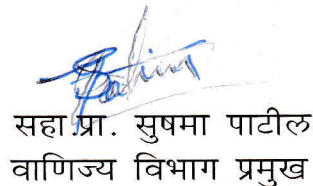 सहा.प्रा. सुषमा पाटील
वाणिज्य विभाग प्रमुख